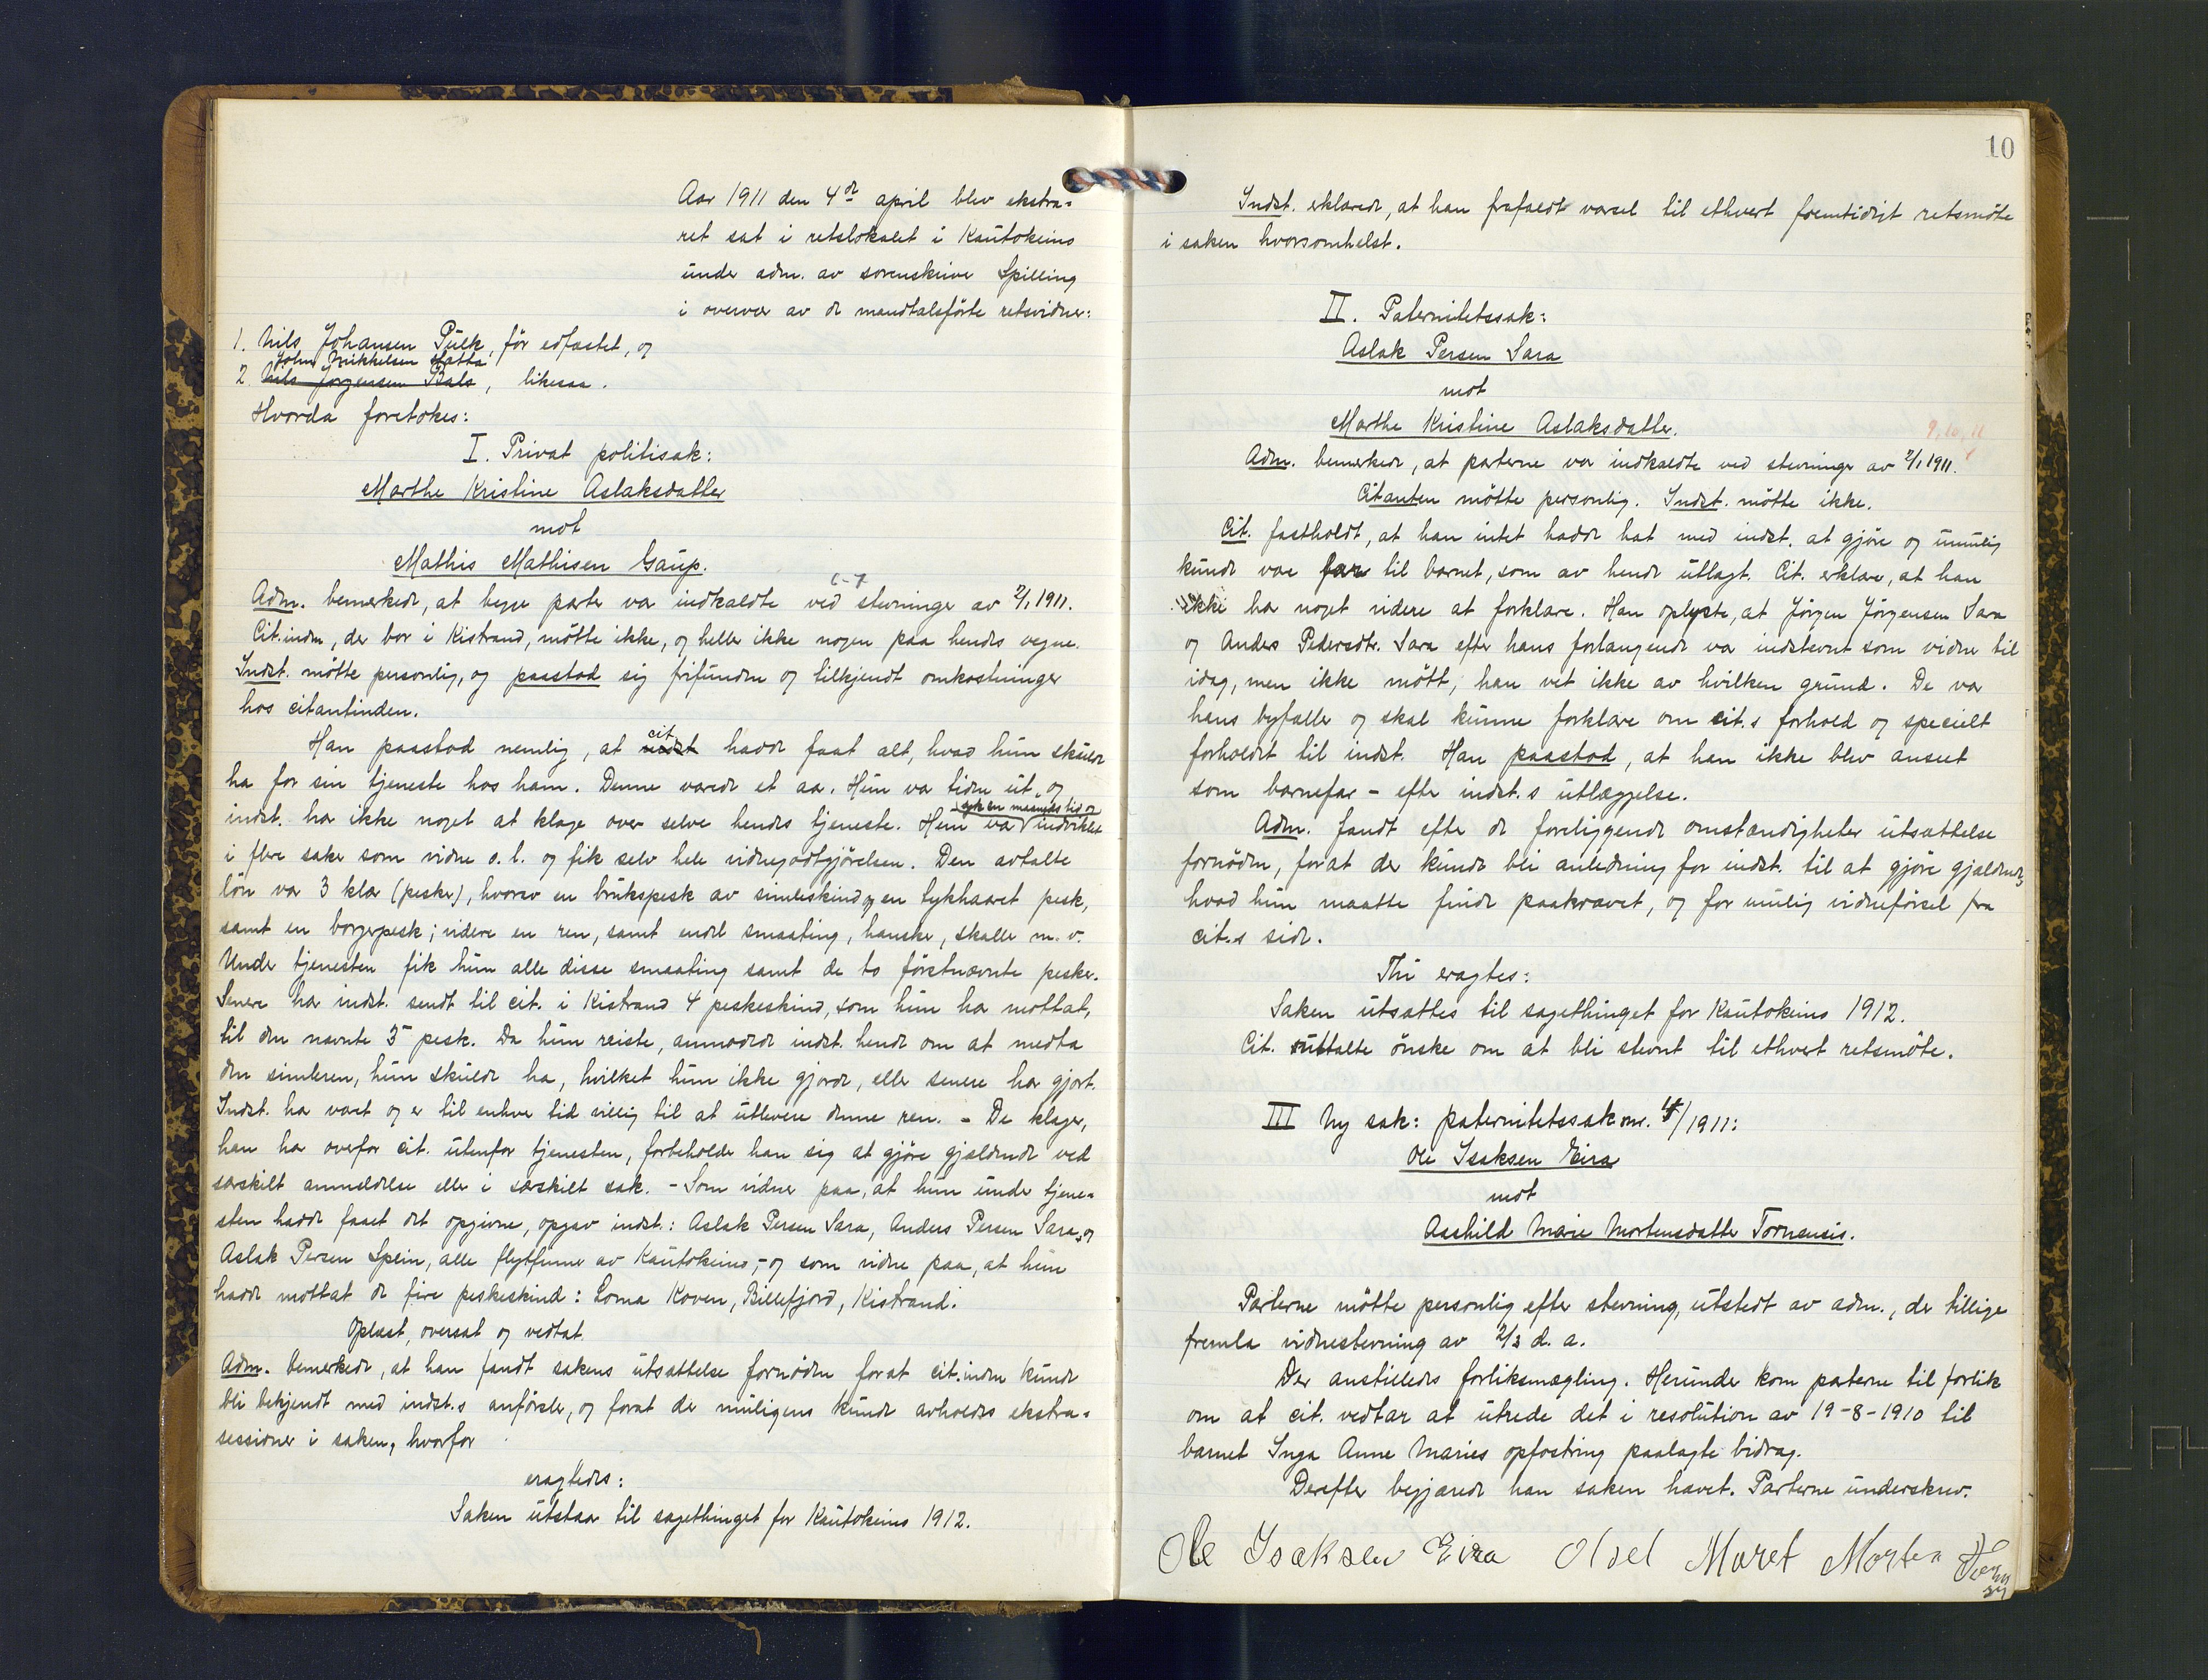 Aar 1911 den 4de april blev ekstra-
ret sat i retslokalet i Kautokeino
under adm. av sorenskriver Spilling
i overvær av de mandtalsførte retsvidner:
1. Nils Johansen Pulk, før edfæstet, og
John Mikkelsen Hætta
2. Nils Jørgensen Bals, likesaa.
Hvorda foretokes:
I. Privat politisak:
Marthe Kristine Aslaksdatter
mot
Mathis Mathisen Gaup.
6-7
Adm. bemerkede, at begge parter var indkaldte ved stevninger av 2/1 1911.
Cit.inden, der bor i Kistrand, møtte ikke, og heller ikke nogen paa hendes vegne.
Indst. møtte personlig, og paastod sig frifunden og tilkjendt omkostninger
hos citantinden.
Han paastod nemlig, at indst cit. hadde faat alt, hvad hun skulde
ha for sin tjeneste hos ham. Denne varede et aar. Hun var tiden ut, og
indst. har ikke noget at klage over selve hendes tjeneste. Hun var syk en maaneds tid og indviklet
i flere saker som vidne o. l. og fik selv hele vidnegodtgjørelsen. Den avtalte
løn var 3 klær (pesker), hvorav en brukspesk av simleskind og en tykhaaret pesk,
samt en borgerpesk; videre en ren, samt endel smaating, hansker, skaller m. v.
Under tjenesten fik hun alle disse smaating samt de to førstnævnte pesker.
Senere har indst. sendt til cit. i Kistrand 4 peskeskind, som hun har mottat,
til den nævnte 3die pesk. Da hun reiste, anmodede indst. hende om at medta
den simleren, hun skulde ha, hvilket hun ikke gjorde, eller senere har gjort.
Indst. har været og er til enhver tid villig til at utlevere denne ren. - De klager,
han har overfor cit. utenfor tjenesten, forbeholder han sig at gjøre gjældende ved
særskilt anmeldelse eller i særskilt sak. - Som vidner paa, at hun under tjene-
sten hadde faaet det opgivne, opgav indst.: Aslak Persen Sara, Anders Persen Sara, og
Aslak Persen Spein, alle flytfinner av Kautokeino, - og som vidne paa, at hun
hadde mottat de fire peskeskind: Lorna Koven, Billefjord, Kistrand.
Oplæst, oversat og vedtat.
Adm. bemerkede, at han fandt sakens utsættelse fornøden forat cit.inden kunde
bli bekjendt med indst.s anførsler, og forat der muligens kunde avholdes ekstra-
sessioner i saken, hvorfor
eragtedes:
Saken utstaar til sagethinget for Kautokeino 1912.
10
Indst. erklærede, at han frafaldt varsel til ethvert fremtidigt retsmøte
i saken hvorsomhelst.
II. Paternitetssak:
Aslak Persen Sara
mot
Marthe Kristine Aslaksdatter.
9, 10, 11
Adm. bemerkede, at parterne var indkaldte ved stevninger av 2/1 1911.
Citanten møtte personlig. Indst. møtte ikke.
Cit. fastholdt, at han intet hadde hat med indst. at gjøre og umulig
kunde være far til barnet, som av hende utlagt. Cit. erklærer, at han
ikke har noget videre at forklare. Han oplyste, at Jørgen Jørgensen Sara
og Anders Pedersdtr. Sara efter hans forlangende var indstevnt som vidner til
idag, men ikke møtt; han vet ikke av hvilken grund. De var
hans byfæller og skal kunne forklare om cit.s forhold og specielt
forholdet til indst. Han paastod, at han ikke blev anseet
som barnefar - efter indst.s utlæggelse.
Adm. fandt efter de foreliggende omstændigheter utsættelse
fornøden, forat der kunde bli anledning for indst. til at gjøre gjældende,
hvad hun maatte finde paakrævet, og for mulig vidneførsel fra
cit.s side.
Thi eragtes:
Saken utsættes til sagethinget for Kautokeino 1912.
Cit. uttalte ønske om at bli stevnt til ethvert retsmøte.
III Ny sak: paternitetssak nr. 4/1911:
Ole Isaksen Eira
mot
Aashild Marie Mortensdatter Tornensis.
Parterne møtte personlig efter stevning, utstedt av adm., der tillige
fremla vidnestevning av 2/3 d. a.
Der anstilledes forliksmægling. Herunder kom parterne til forlik
om at cit. vedtar at utrede det i resolution av 19-8-1910 til
barnet Inga Anne Maries opfostring paalagte bidrag.
Derefter begjærede han saken hævet. Parterne underskrev.
Ole Isaksen Eira Olsel Maret Morten